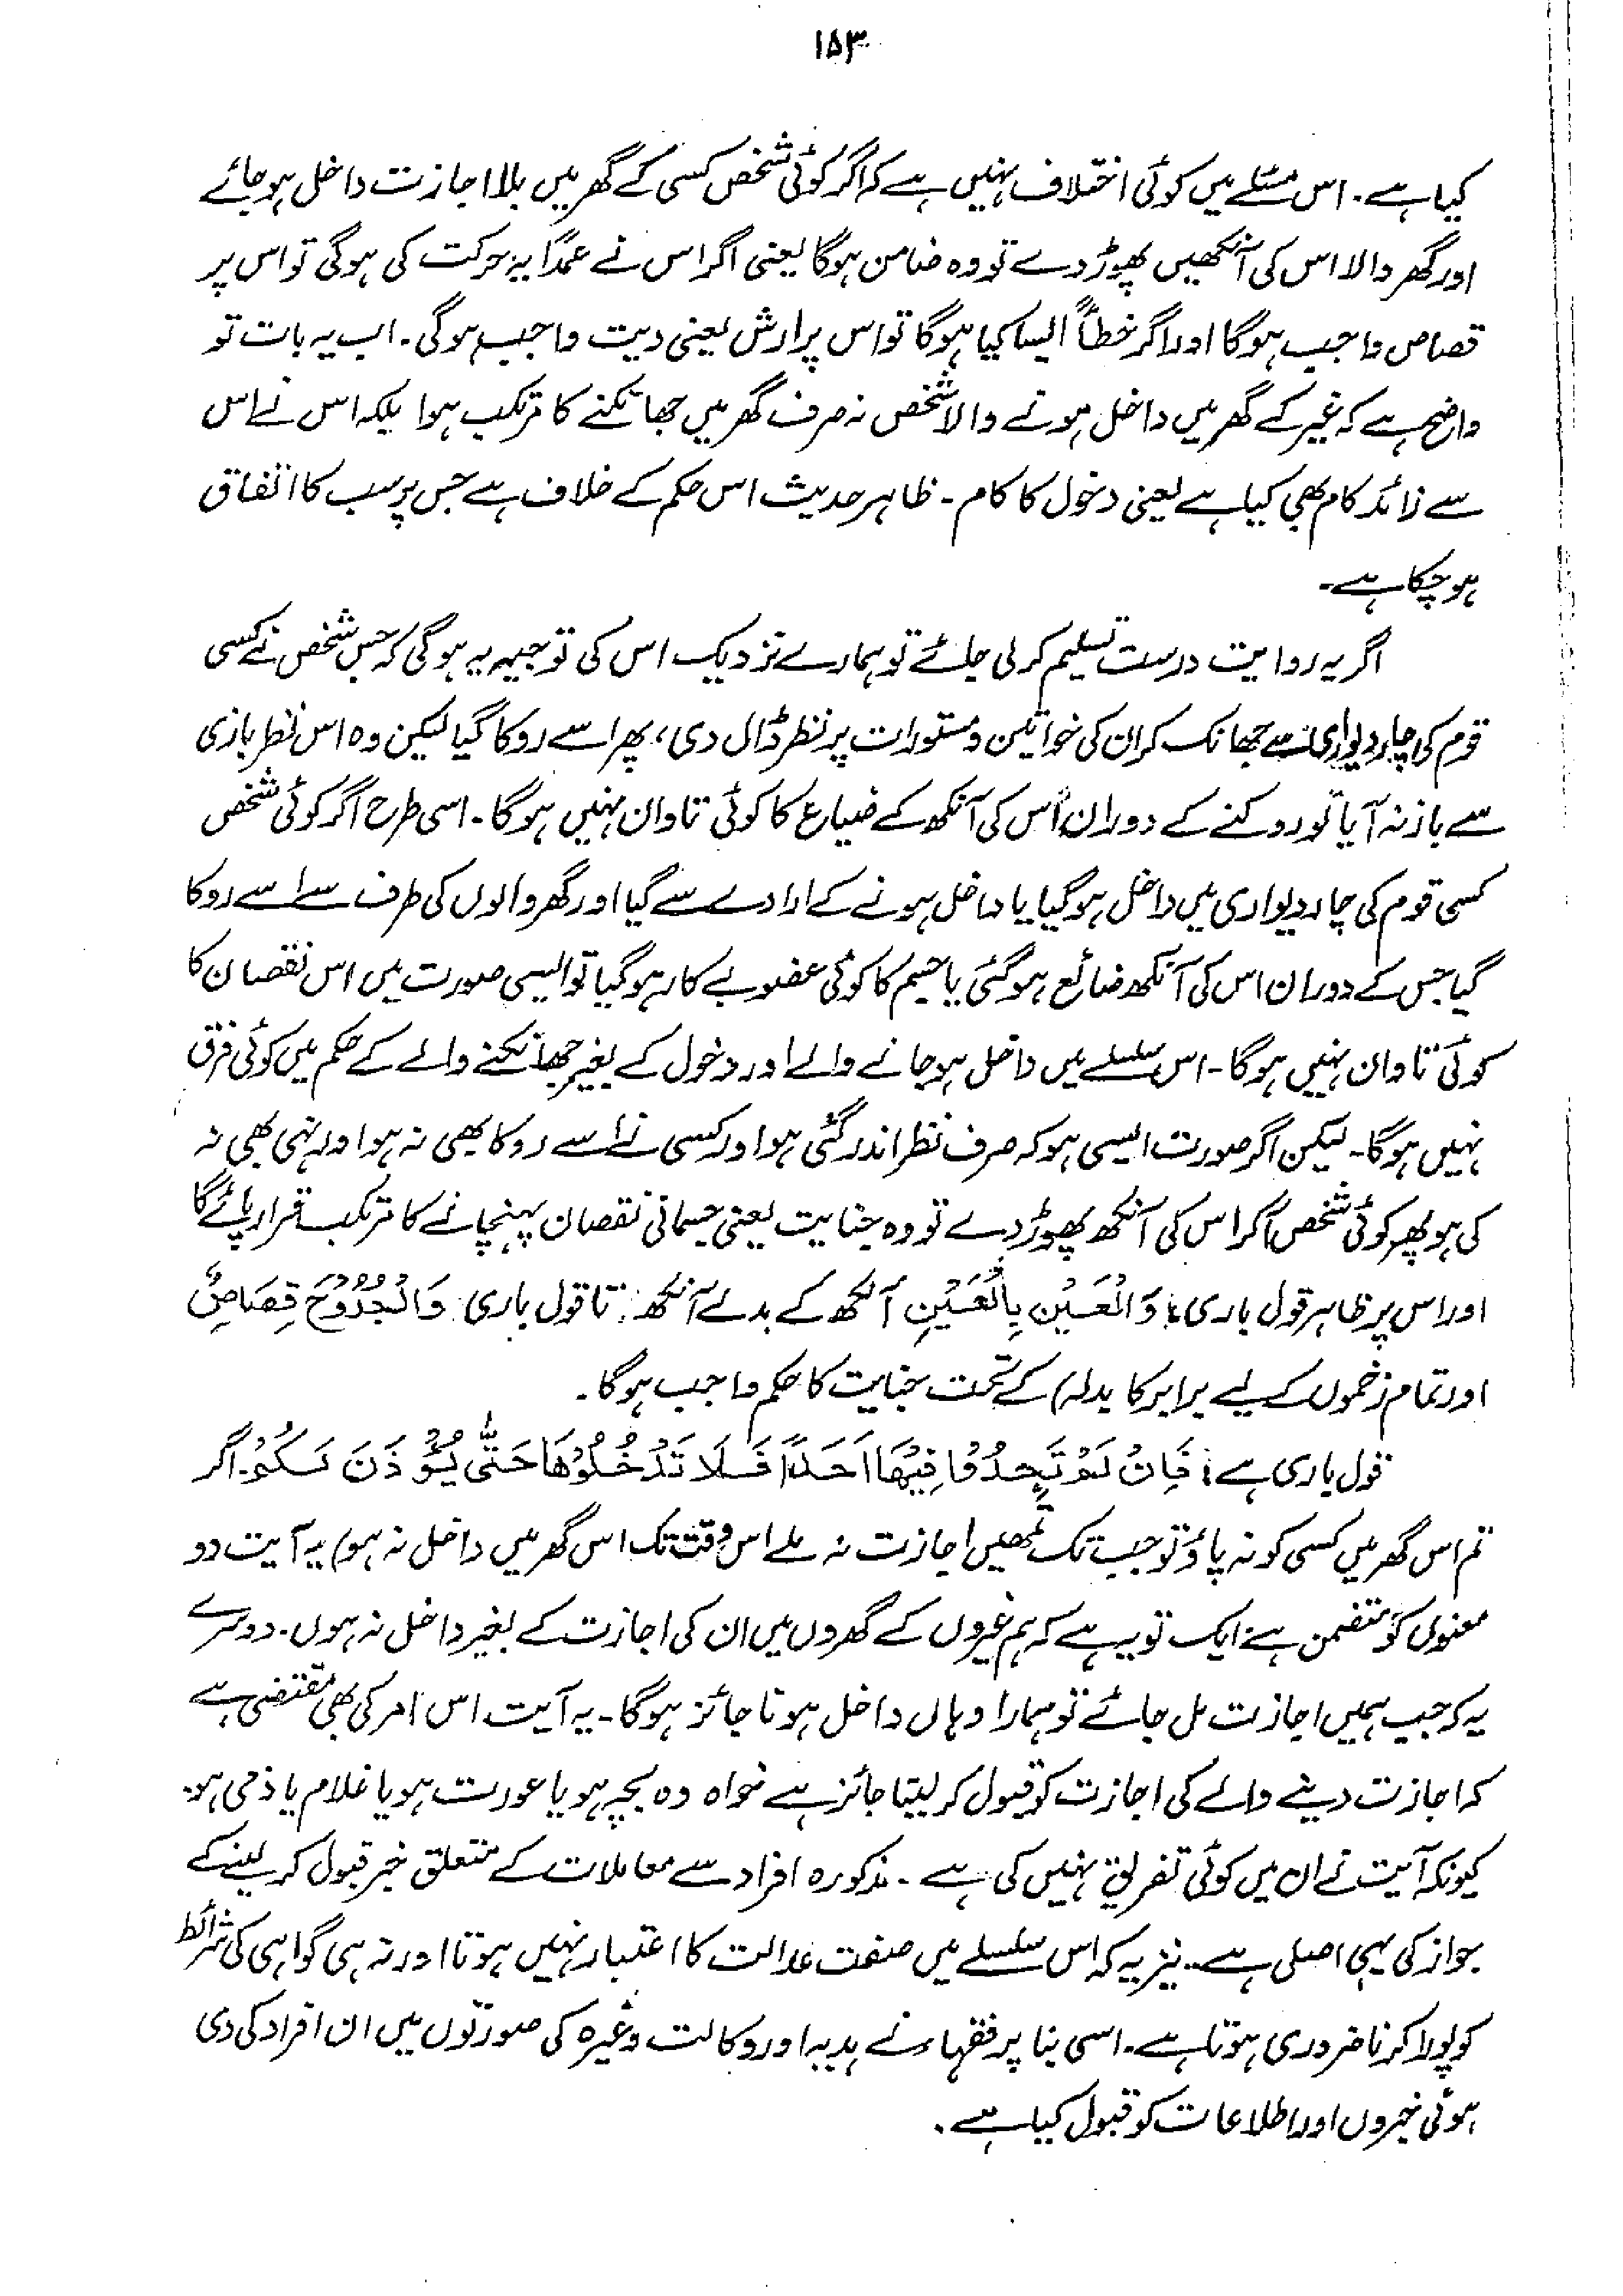 ۱۵۳
کیا ہے۔ اس مسئلے میں کوئی اختلاف نہیں ہے کہ اگر کوئی شخص کسی کے گھر میں بلا اجازت داخل ہو جائے
اور گھر والا اس کی آنکھیں پھوڑ دے تو وہ ضامن ہوگا یعنی اگر اس نے عمداً یہ حرکت کی ہوگی تو اس پر
قصاص واجب ہوگا اور اگر خطاً ایسا کیا ہوگا تو اس پر ارش یعنی دیت واجب ہوگی۔ اب یہ بات تو
واضح ہے کہ غیر کے گھر میں داخل ہونے والا شخص نہ صرف گھر میں جھانکنے کا مرتکب ہوا بلکہ اس نے اس
سے زائد کام بھی کیا ہے یعنی دخول کا کام۔ ظاہر حدیث اس حکم کے خلاف ہے جس پر سب کا اتفاق
ہو چکا ہے۔
اگر یہ روایت درست تسلیم کر لی جائے تو ہمارے نزدیک اس کی توجیہہ یہ ہوگی کہ جس شخص نے کسی
قوم کی چار دیواری سے جھانک کر ان کی خواتین و مستورات پر نظر ڈال دی، پھر اسے روکا گیا لیکن وہ اس نظر بازی
سے باز نہ آیا تو روکنے کے دوران اس کی آنکھ کے ضیاع کا کوئی تاوان نہیں ہوگا۔ اسی طرح اگر کوئی شخص
کسی قوم کی چار دیواری میں داخل ہو گیا یا داخل ہونے کے ارادے سے گیا اور گھر والوں کی طرف سے اسے روکا
گیا جس کے دوران اس کی آنکھ ضائع ہو گئی یا جسم کا کوئی عضو بے کار ہو گیا تو ایسی صورت میں اس نقصان کا
کوئی تاوان نہیں ہوگا۔ اس سلسلے میں داخل ہو جانے والے اور دخول کے بغیر جھانکنے والے کے حکم میں کوئی فرق
نہیں ہوگا۔ لیکن اگر صورت ایسی ہو کہ صرف نظر اندر گئی ہو اور کسی نے اسے روکا بھی نہ ہو اور نہی بھی نہ
کی ہو پھر کوئی شخص اگر اس کی آنکھ پھوڑ دے تو وہ جنایت یعنی جسمانی نقصان پہنچانے کا مرتکب قرار پائے گا
اور اس پر ظاہر قول باری: وَالْعَيْنَ بِالْعَيْنِ آنکھ کے بدلے آنکھ: تا قول باری: وَالْجُرُوْحَ قِصَاصٌ
اور تمام زخموں کے لیے برابر کا بدلہ) کے تحت جنایت کا حکم واجب ہوگا۔
قول باری ہے: فَاِنْ لَّمْ تَجِدُوْا فِيْهَا اَحَدًا فَلَا تَدْخُلُوْهَا حَتّٰى يُؤْذَنَ لَكُمْ۔ اگر
تم اس گھر میں کسی کو نہ پاؤ تو جب تک تمھیں اجازت نہ ملے اس وقت تک اس گھر میں داخل نہ ہو) یہ آیت دو
معنوں کو متضمن ہے ایک تو یہ ہے کہ ہم غیروں کے گھروں میں ان کی اجازت کے بغیر داخل نہ ہوں۔ دوسرے
یہ کہ جب ہمیں اجازت مل جائے تو ہمارا وہاں داخل ہونا جائز ہوگا۔ یہ آیت اس امر کی بھی مقتضی ہے
کہ اجازت دینے والے کی اجازت کو قبول کر لینا جائز ہے خواہ وہ بچہ ہو یا عورت ہو یا غلام یا ذمی ہو۔
کیونکہ آیت نے ان میں کوئی تفریق نہیں کی ہے۔ مذکورہ افراد سے معاملات کے متعلق خبر قبول کر لینے کے
جواز کی یہی اصلی ہے۔ نیز یہ کہ اس سلسلے میں صفت عدالت کا اعتبار نہیں ہوتا اور نہ ہی گواہی کی شرائط
کو پورا کرنا ضروری ہوتا ہے۔ اسی بنا پر فقہاء نے ہدیہ اور وکالت وغیرہ کی صورتوں میں ان افراد کی دی
ہوئی خبروں اور اطلاعات کو قبول کیا ہے۔